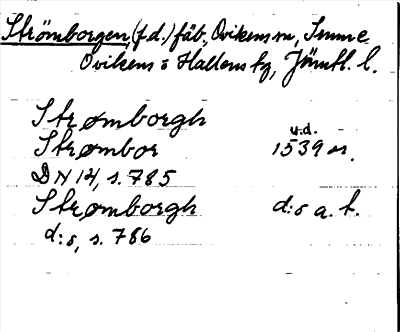 Strömborgen, (f.d.) fäb., Ovikens sn,
Ovikens o Hallens tg, Jämtl. l.
Strømborgh
Strømbor u.d. 1539 or.
DN 14, s. 785
Strømborgh d:o a. t.
d:o, s. 786